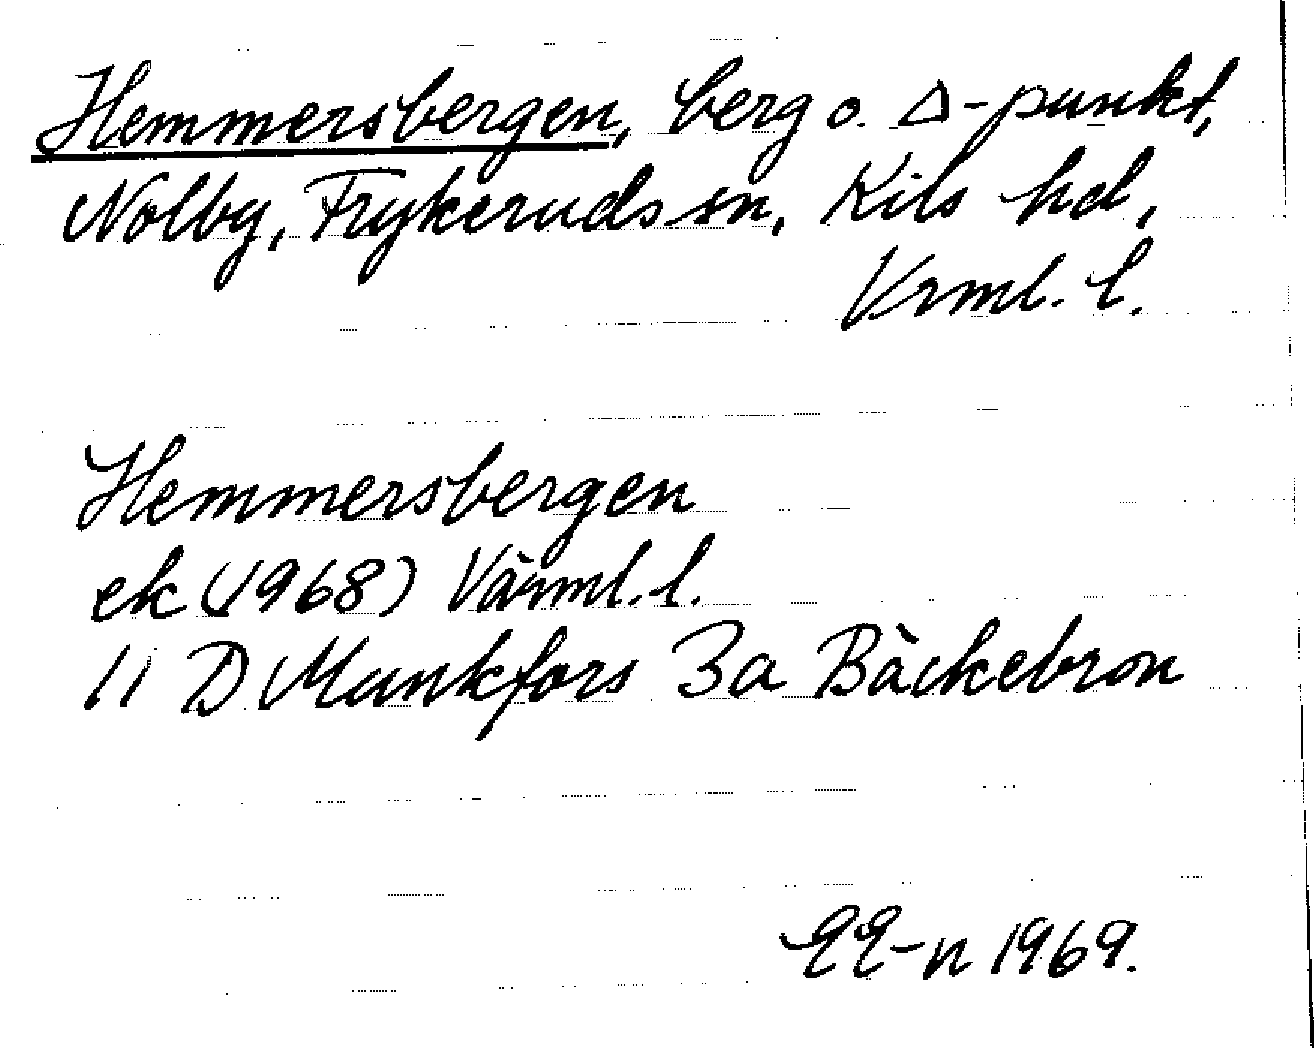 Hemmersbergen, berg o. Δ-punkt,
Nolby, Frykeruds sn, Kils hd,
Vrml. l.
Hemmersbergen
ek (1968) Värml. l.
11 D Munkfors 3a Bäckebron
EE-n 1969.